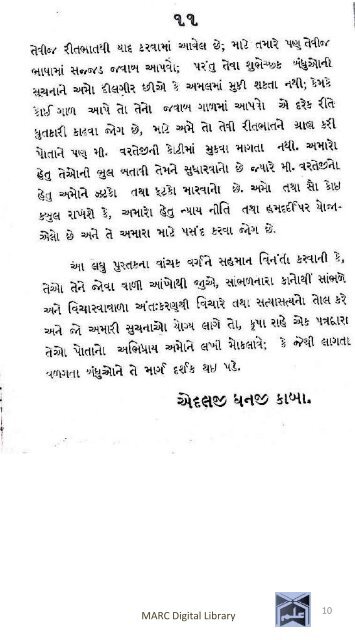 ૧૧
તેવીજ રીતભાતથી યાદ કરવામાં આવેલ છે; માટે તમારે પણ તેવીજ
ભાષામાં સજ્જડ જવાબ આપવો; પરંતુ તેવા શુભેચ્છક બંધુઓની
સુચનાને અમે દીલગીર છીએ કે અમલમાં મુકી શકતા નથી; કેમકે
કોઈ ગાળ આપે તો તેનો જવાબ ગાળમાં આપવો એ દરેક રીતે
ધુતકારી કાઢવા જોગ છે, માટે અમે તો તેવી રીતભાતને ગ્રાહ્ય કરી
પોતાને પણ મી. વરતેજીની કોટીમાં મુકવા માગતા નથી. અમારો
હેતુ તેઓની ભુલ બતાવી તેમને સુધારવાનો છે જ્યારે મી. વરતેજીનો
હેતુ અમોને ઝટકો તથા ફટકો મારવાનો છે. અમો તથા સૌ કોઇ
કબુલ રાખશે કે, અમારો હેતુ ન્યાય નીતિ તથા હમદર્દીપર યોજા-
એલો છે અને તે અમારા માટે પસંદ કરવા જોગ છે.
આ લઘુ પુસ્તકના વાંચક વર્ગને સહમાન વિનંતી કરવાની કે,
તેઓ તેને જોવા વાળી આંખોથી જુએ, સાંભળનારા કાનોથી સાંભળે
અને વિચારવાવાળા અંતઃકરણથી વિચારે તથા સત્યાસત્યનો તોલ કરે
અને જો અમારી સુચનાઓ યોગ્ય લાગે તો, કૃપા રાહે એક પત્રદ્વારા
તેઓ પોતાનો અભિપ્રાય અમોને લખી મોકલાવે; કે જેથી લાગતા
વળગતા બંધુઓને તે માર્ગ દર્શક થઇ પડે.
એદલજી ધનજી કાબા.
MARC Digital Library
10